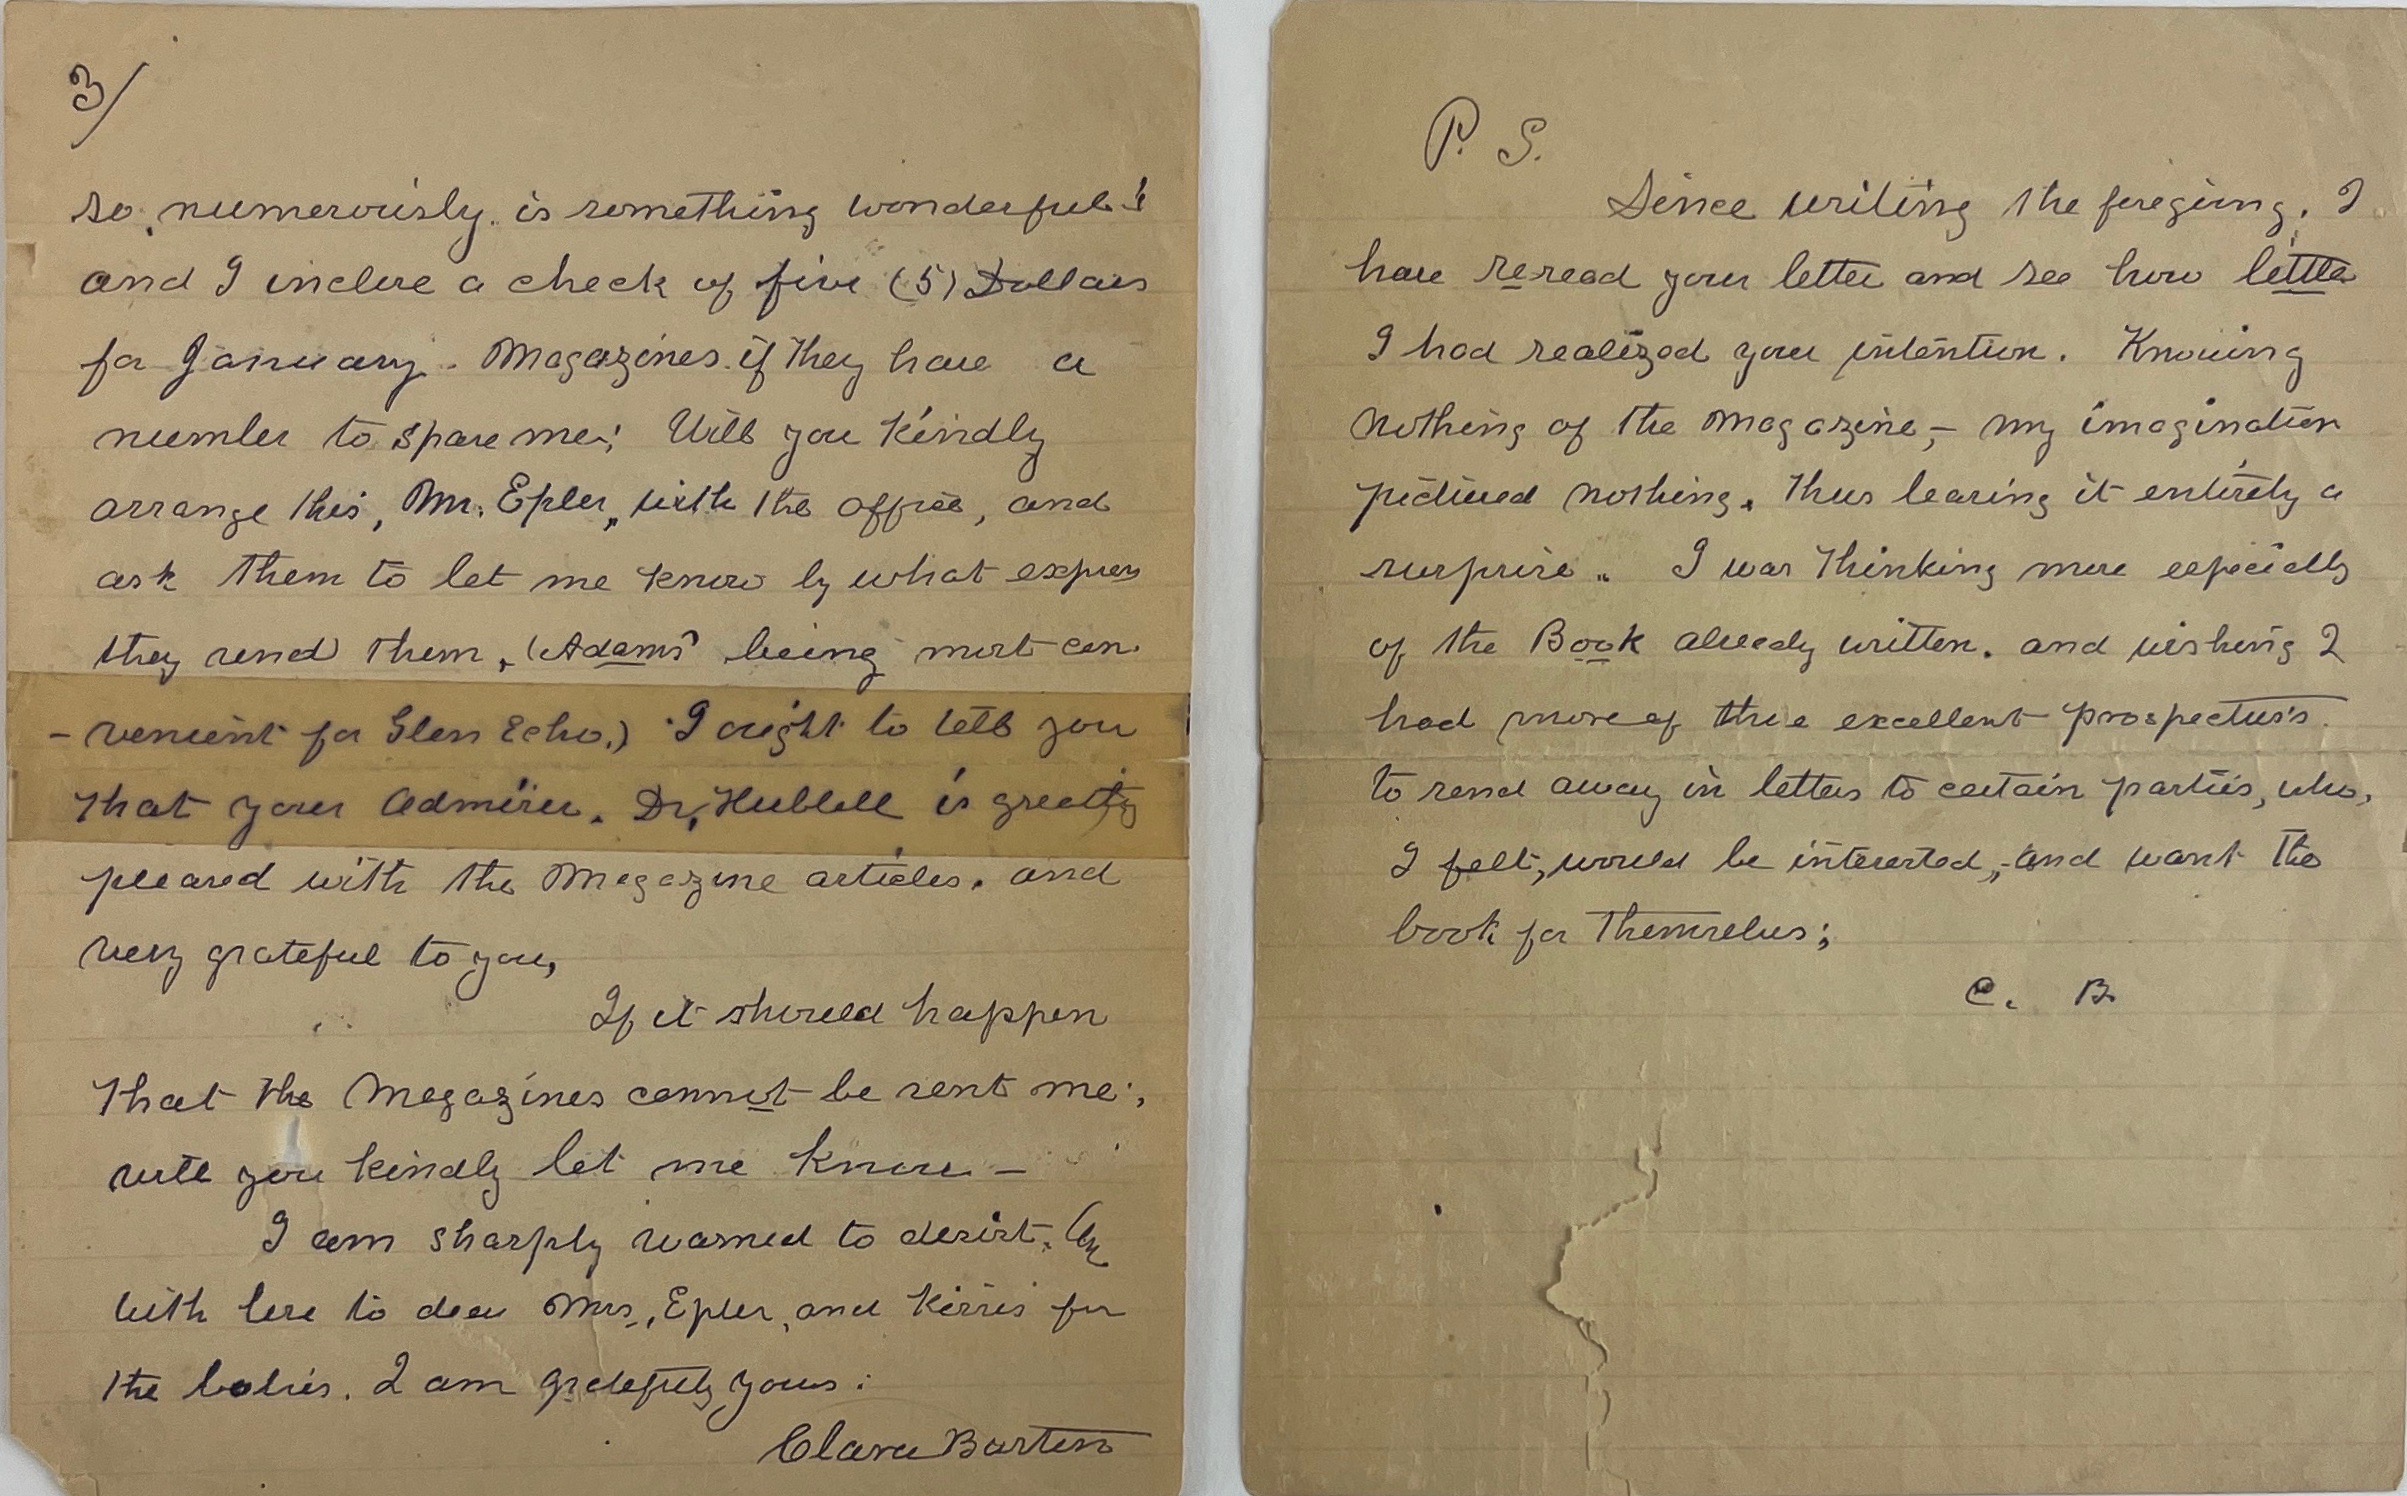 3/
so, numerously. is something wonderful!
and I inclose a check of five (5) Dollars
for January - Magazines if they have a
number to spare me; Will you kindly
arrange this, Mr. Epler, with the office, and
ask them to let me know by what express
they send them, (Adams being most con
- venient for Glen Echo.) I ought to tell you
that your admirer. Dr, Hubbell is greatly
pleased with the Magazine articles. and
very grateful to you,
If it should happen
that the Magazines cannot be sent me;
will you kindly let me know -
I am sharply warned to desist.
With love to dear Mrs., Epler, and kisses for
the babies. I am gratefully yours:
Clara Barton
P. S.
Since writing the foregoing, I
have reread your letter and see how little
I had realized your intention. Knowing
nothing of the Magazine, - my imagination
pictured nothing. Thus leaving it entirely a
surprise. I was thinking more especially
of the Book already written. and wishing I
had more of those excellent prospectus's
to send away in letters to certain parties, who,
I felt, would be interested, - and want the
book for themselves;
C. B.